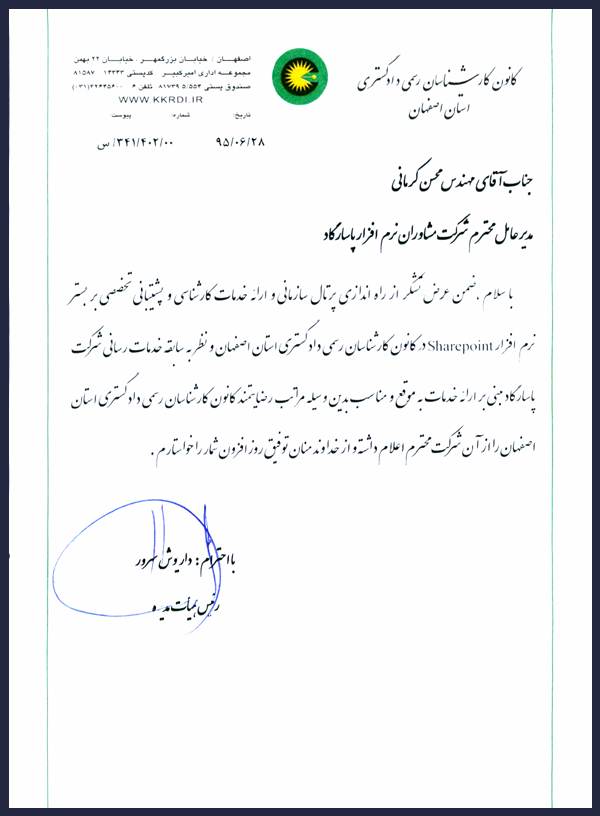 کانون کارشناسان رسمی دادگستری
استان اصفهان
اصفهان / خیابان بزرگمهر ، خیابان ۲۲ بهمن
مجموعه اداری امیرکبیر کدپستی ۱۴۳۳۳ ۸۱۵۸۷
صندوق پستی ۸۱۷۳۹/۵/۵۵۳ تلفن ۶ - ۳۲۶۳۵۶۰۰(۰۳۱)
WWW.KKRDI.IR
تاریخ: شماره: پیوست:
۹۵/۰۶/۲۸ ۳۴۱/۴۰۲/۰۰/ س
جناب آقای مهندس محسن کرمانی
مدیرعامل محترم شرکت مشاوران نرم افزار پاسارگاد
با سلام ،ضمن عرض تشکر از راه اندازی پرتال سازمانی و ارائه خدمات کارشناسی و پشتیبانی تخصصی بر بستر
نرم افزار Sharepoint در کانون کارشناسان رسمی دادگستری استان اصفهان و نظر به سابقه خدمات رسانی شرکت
پاسارگاد مبنی بر ارائه خدمات به موقع و مناسب بدین وسیله مراتب رضایتمند کانون کارشناسان رسمی دادگستری استان
اصفهان را از آن شرکت محترم اعلام داشته و از خداوند منان توفیق روز افزون شمار را خواستارم .
با احترام : داریوش سرور
رئیس هیأت مدیره